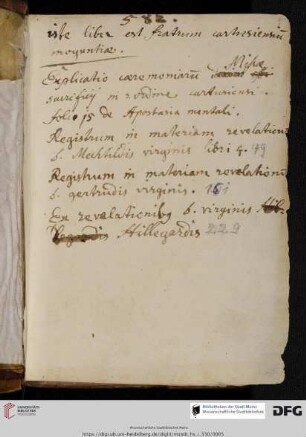 582.
iste liber est fratrum cartusiensium
moguntiæ.
Missæ
Explicatio cæremoniarum
sacrificij in ordine cartusiensi.
folio 75 de Apostasia mentali.
Registrum in materiam revelationum
b. Mechtildis virginis libri 4. 99
Registrum in materiam revelationum
b. gertrudis virginis. 151
Ex revelationibus b. virginis
Hillegardis 229
UNIVERSITÄTS-
BIBLIOTHEK
HEIDELBERG
Bibliotheken der Stadt Mainz
Wissenschaftliche Stadtbibliothek
DFG